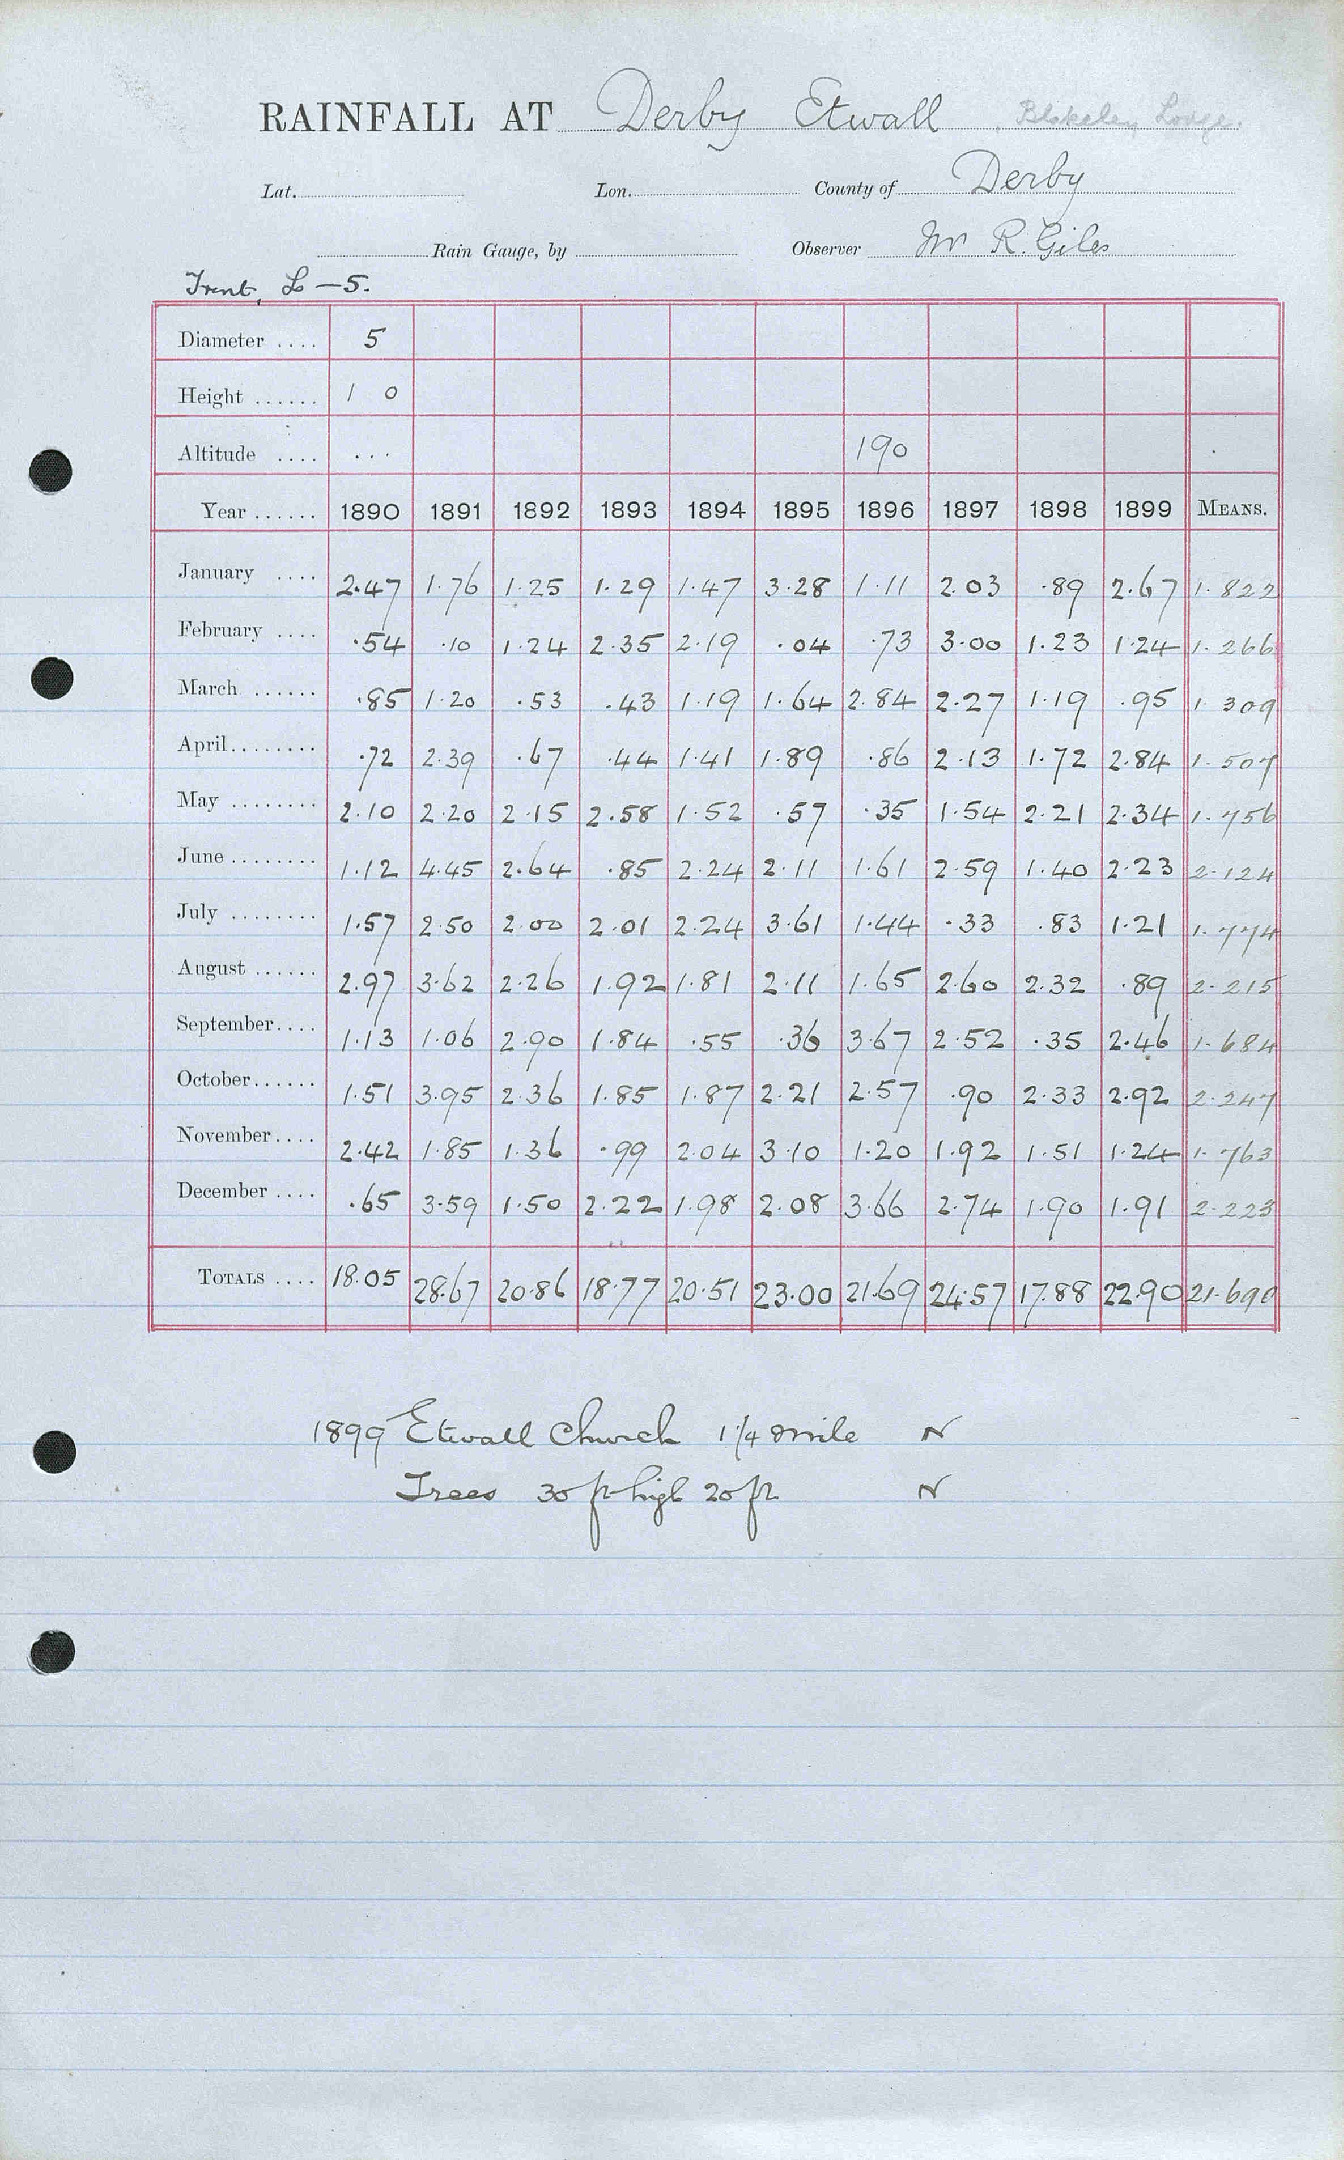 RAINFALL AT Derby Etwall Blakeley Lodge.
Lat. Lon. County of Derby
Rain Gauge, by Observer Mr R. Giles
Trent, L-5.
Diameter .... 5
Height ...... 1 0
Altitude .... ... 190
Year ...... 1890 1891 1892 1893 1894 1895 1896 1897 1898 1899 MEANS.
January .... 2.47 1.76 1.25 1.29 1.47 3.28 1.11 2.03 .89 2.67 1.822
February .... .54 .10 1.24 2.35 2.19 .04 .73 3.00 1.23 1.24 1.266
March ...... .85 1.20 .53 .43 1.19 1.64 2.84 2.27 1.19 .95 1.309
April........ .72 2.39 .67 .44 1.41 1.89 .86 2.13 1.72 2.84 1.507
May ........ 2.10 2.20 2.15 2.58 1.52 .57 .35 1.54 2.21 2.34 1.756
June ........ 1.12 4.45 2.64 .85 2.24 2.11 1.61 2.59 1.40 2.23 2.124
July ........ 1.57 2.50 2.00 2.01 2.24 3.61 1.44 .33 .83 1.21 1.774
August ...... 2.97 3.62 2.26 1.92 1.81 2.11 1.65 2.60 2.32 .89 2.215
September.... 1.13 1.06 2.90 1.84 .55 .36 3.67 2.52 .35 2.46 1.684
October...... 1.51 3.95 2.36 1.85 1.87 2.21 2.57 .90 2.33 2.92 2.247
November.... 2.42 1.85 1.36 .99 2.04 3.10 1.20 1.92 1.51 1.24 1.763
December .... .65 3.59 1.50 2.22 1.98 2.08 3.66 2.74 1.90 1.91 2.223
TOTALS .... 18.05 28.67 20.86 18.77 20.51 23.00 21.69 24.57 17.88 22.90 21.690
1899 Etwall Church 1 1/4 mile N
Trees 30 ft high 20 ft N